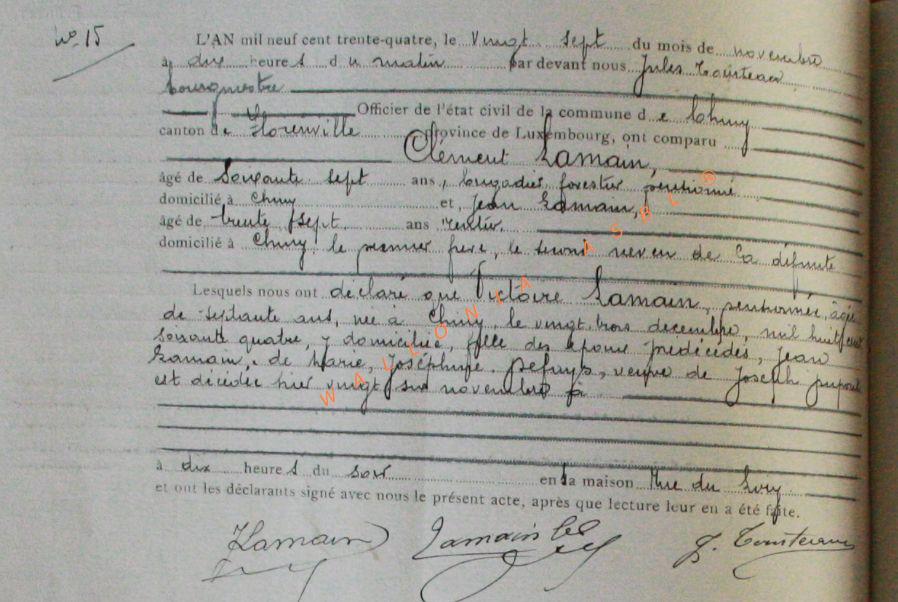 No 15
L'AN mil neuf cent trente-quatre, le vingt sept du mois de novembre
à dix heures du matin par devant nous Jules
bourgmestre
Officier de l'état civil de la commune de Chiny
canton de Florenville Province de Luxembourg, ont comparu
Clément Lamain,
âgé de soixante sept ans, brigadier forestier pensionné
domicilié à Chiny et Jean Lamain,
âgé de trente sept ans rentier
domicilié à Chiny le premier frère, le second neveu de la défunte
Lesquels nous ont déclaré que Victoire Lamain, pensionnée, âgée
de septante ans, née à Chiny, le vingt trois décembre, mil huit cent
soixante quatre, y domiciliée, fille des époux prédécédés, Jean
Lamain, de Marie, Joséphine, veuve de Joseph
est décédée hier vingt six novembre
à dix heures du soir en sa maison Rue du
et ont les déclarants signé avec nous le présent acte, après que lecture leur en a été faite.
JLamain Lamain J.
WALLONIA ASBL ©